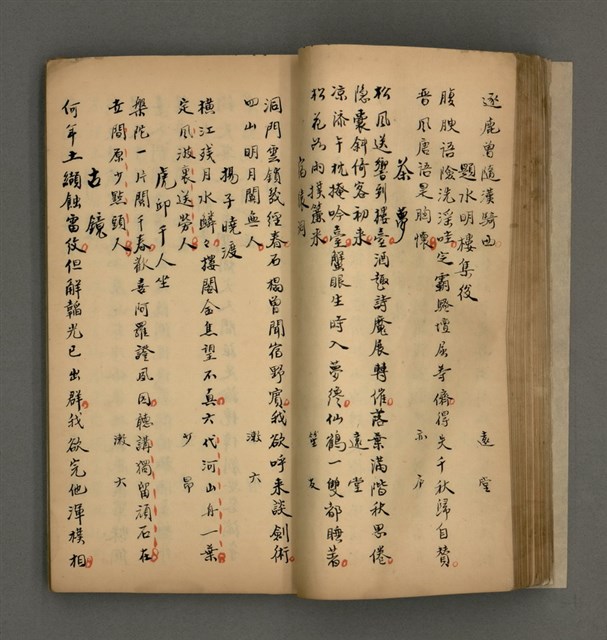 逐鹿曾隨漢騎過 遠堂
題水明樓集後
腹腴語險洗淫哇定霸騷壇屈等儕得失千秋歸自贊
晋風唐語是胸懷 亦戶
茶夢
松風送響到樓臺酒魁詩魔展轉催落葉滿階秋思倦
隱囊斜倚客初來 遠堂
凉添午枕掩吟臺蟹眼生時入夢纔仙鶴一雙都睡著
松花如雨撲簾來 笙友
洞門雲鎖幾經春石榻曾聞宿野賓我欲呼來談劍術
四山明月闃無人 漱六
揚子曉渡
橫江殘月水鱗々樓閣金焦望不真六代河山舟一葉
定風波裏送勞人 少昂
虎邱千人坐
槃陀一片閱千春歡喜阿羅證夙因聽講獨留頑石在
世間原少點頭人 漱六
古鏡
何年土纈蝕雷紋但解韜光已出群我欲完他渾樸相